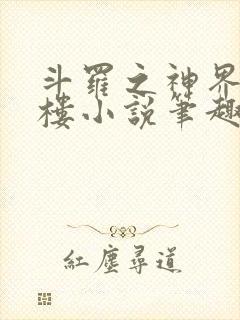 斗羅之神界
樓小說筆趣
紅塵尋道